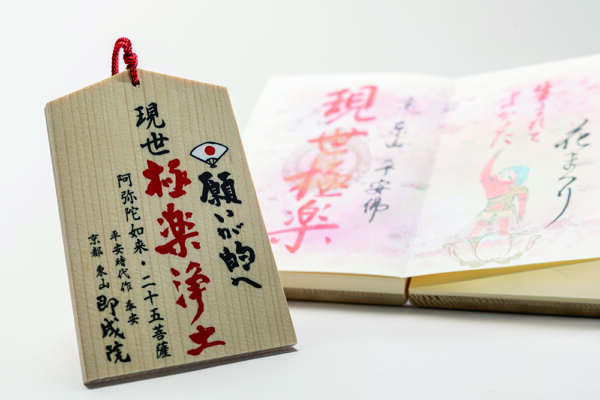 願いが的へ
現世極楽浄土
阿弥陀如来・二十五菩薩
平安時代作 奉安
京都 東山 即成院
現世極楽
東山 平安佛
生まれて
よかった
花まつり